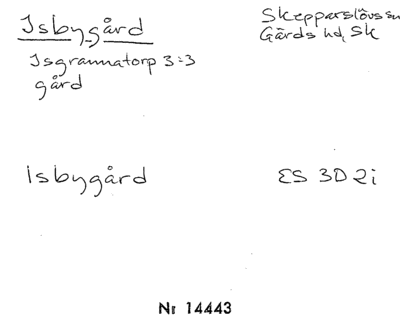 Isbygård
Skepparslövs sn
Gärds hd, Sk
Isgrannatorp 3:3
gård
Isbygård
ES 3D 2i
Nr 14443